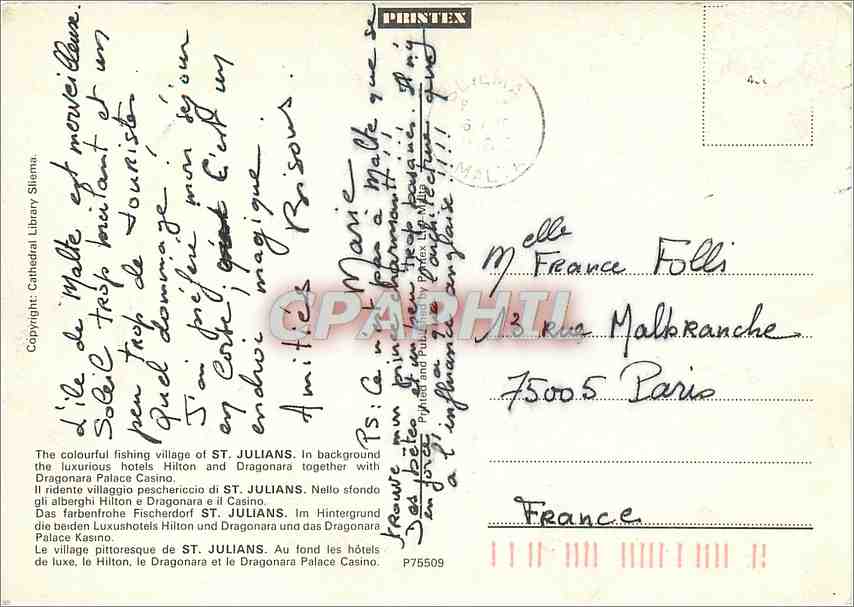 PRINTEX
L'ile de Malte est merveilleuse.
Soleil trop brûlant et un
peu trop de touristes.
Quel dommage !
J'ai préféré mon séjour
en Corse, c'est un
endroi magique.
Amitiés Bisous.
Marie
PS : Ce n'est pas a Malte que se
trouve mon prince charmant !!
Des bêtes et un peu trop basanés. Il n'y
en force. a que l'architecture qui
a l'influence anglaise !!!!
SLIEMA
MALTA
Melle
France Folli
13 rue Malbranche
75005 Paris
France
Copyright: Cathedral Library Sliema.
Printed and Published by Printex Ltd. Malta
CPARHTI
The colourful fishing village of ST. JULIANS. In background
the luxurious hotels Hilton and Dragonara together with
Dragonara Palace Casino.
Il ridente villaggio peschericcio di ST. JULIANS. Nello sfondo
gli alberghi Hilton e Dragonara e il Casino.
Das farbenfrohe Fischerdorf ST. JULIANS. Im Hintergrund
die berden Luxushotels Hilton und Dragonara und das Dragonara
Palace Kasino.
Le village pittoresque de ST. JULIANS. Au fond les hôtels
de luxe, le Hilton, le Dragonara et le Dragonara Palace Casino.
P75509